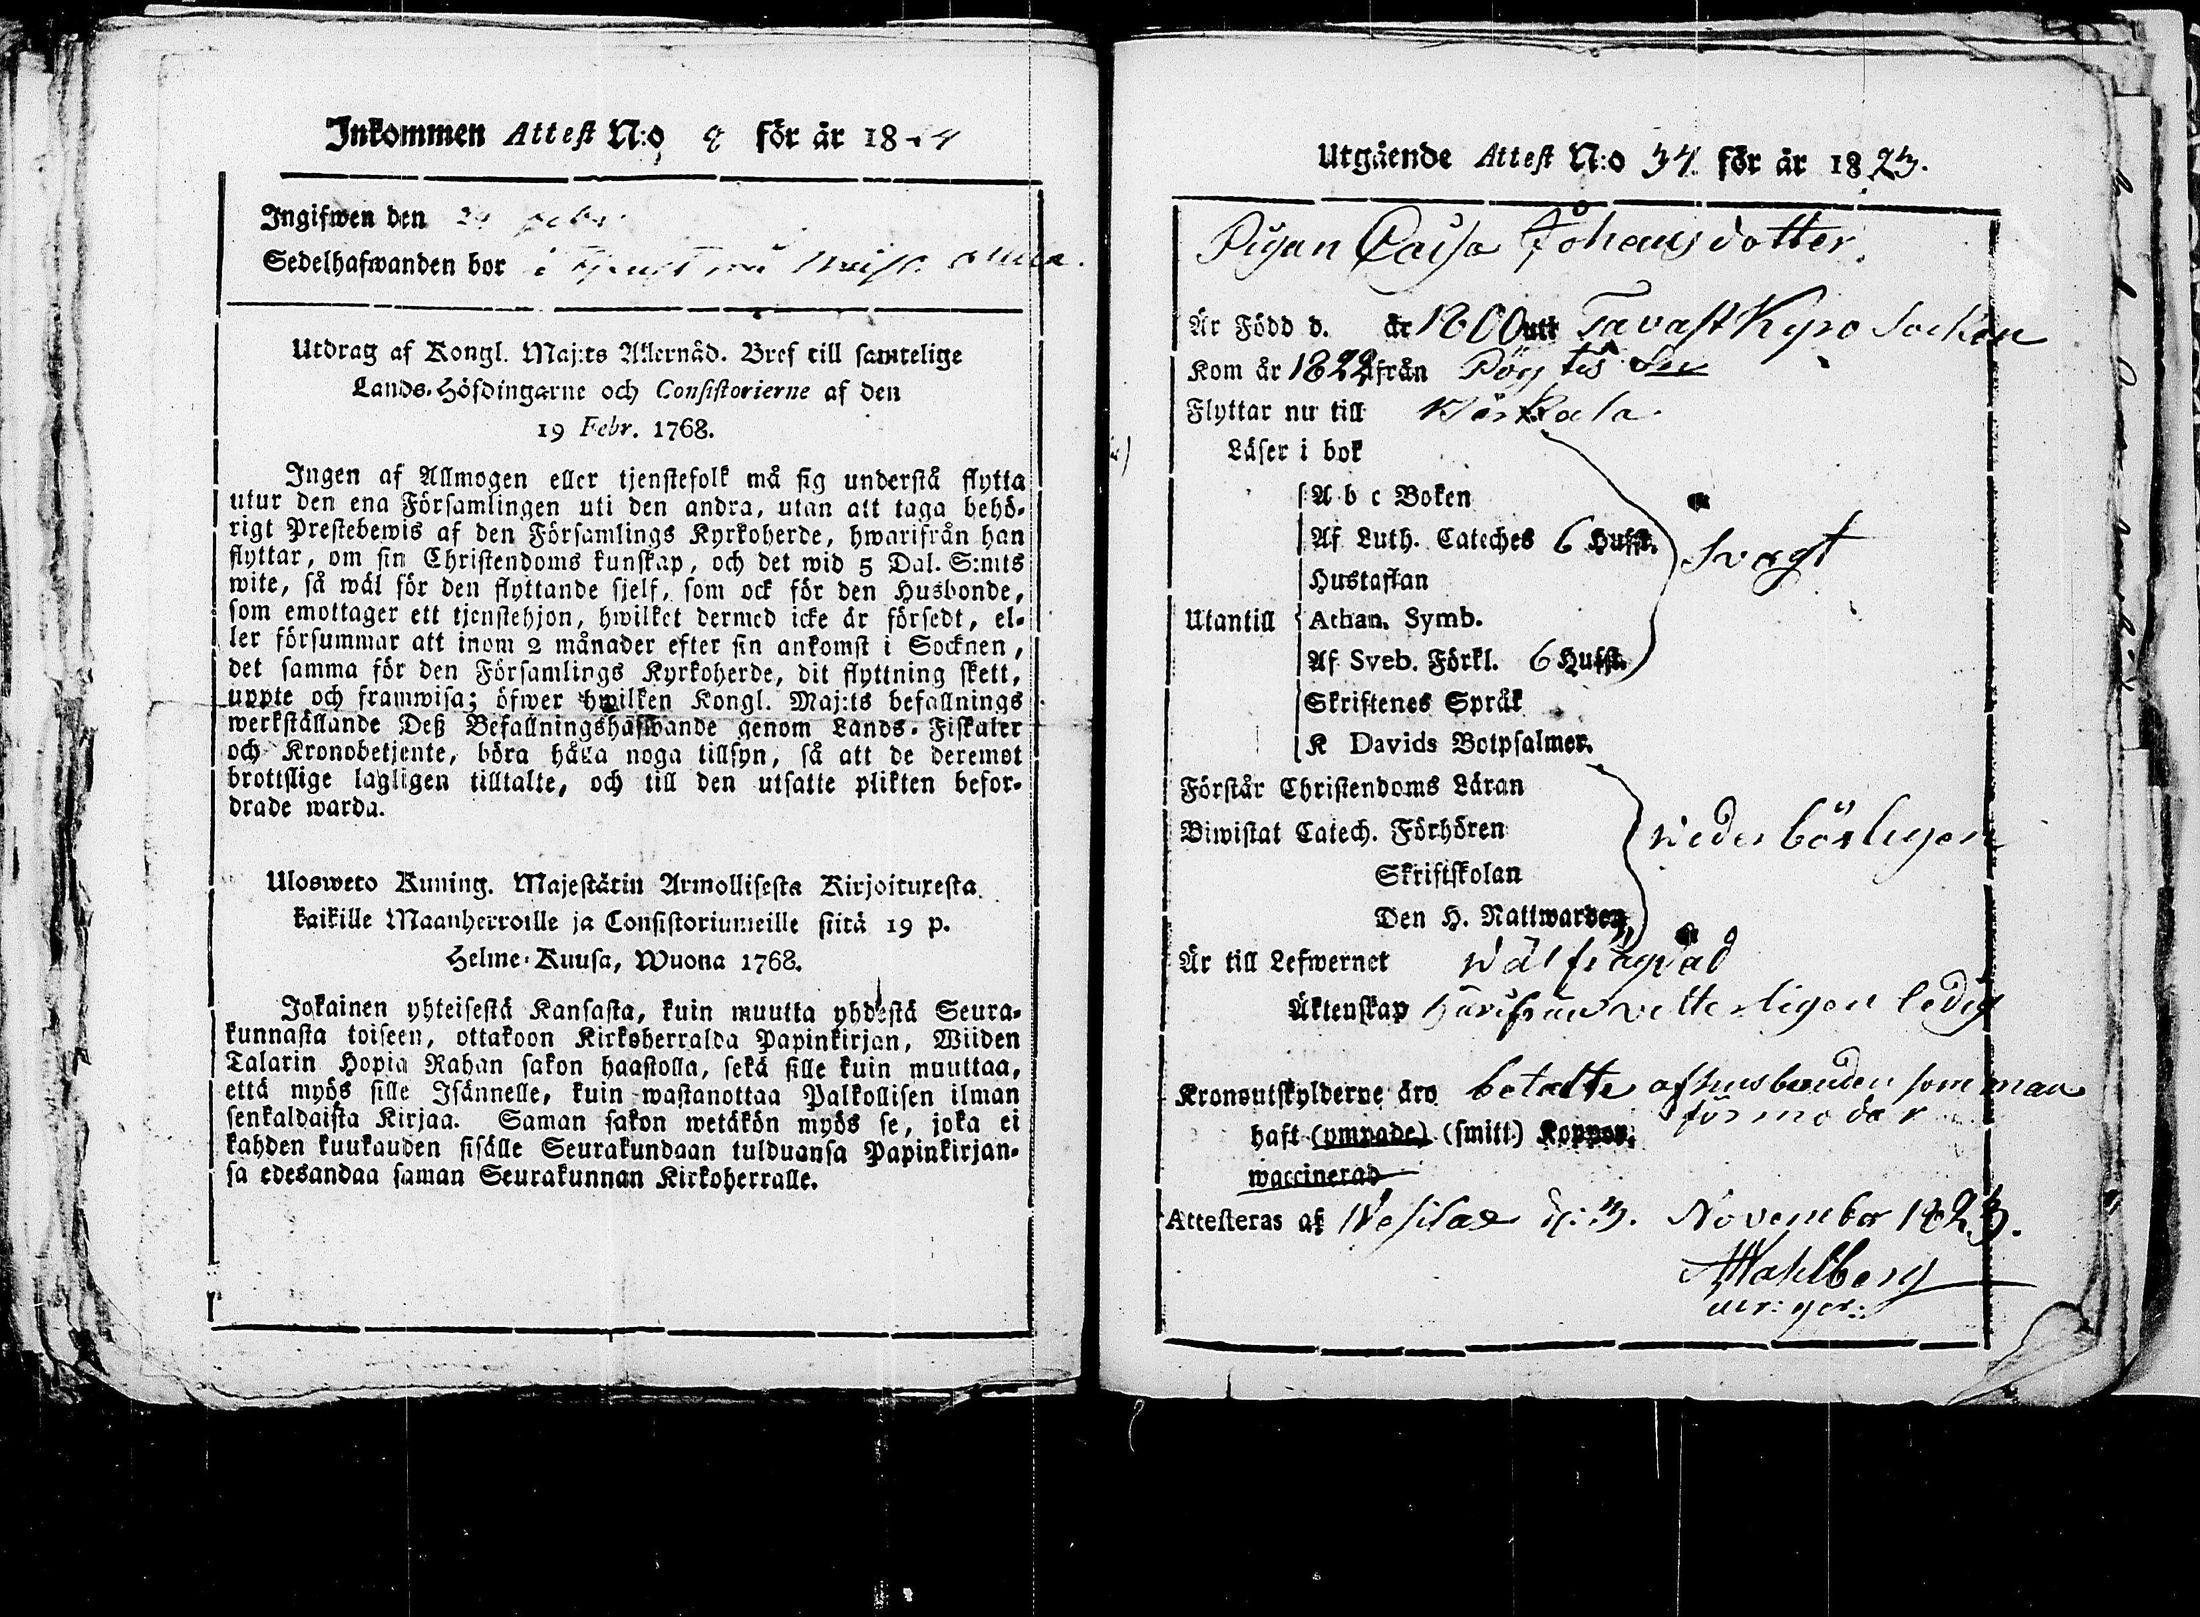 Inkommen Attest N:o 9 för år 1824
Ingifwen den 24 febr.
Sedelhafwanden bor i tjenst
Utdrag af Kongl. Maj:ts Allernåd. Bref till samtelige
Lands-Höfdingarne och Consistorierne af den
19 Febr. 1768.
Ingen af Allmogen eller tjenstefolk må sig understå flytta
utur den ena Församlingen uti den andra, utan att taga behö-
rigt Prestebewis af den Församlings Kyrkoherde, hwarifrån han
flyttar, om sin Christendoms kunskap, och det wid 5 Dal. S:mts
wite, så wäl för den flyttande sjelf, som ock för den Husbonde,
som emottager ett tjenstehjon, hwilket dermed icke är försedt, el-
ler försummar att inom 2 månader efter sin ankomst i Socknen,
det samma för den Församlings Kyrkoherde, dit flyttning skett,
uppte och framwisa; öfwer hwilken Kongl. Maj:ts befallnings
werkställande Deß Befallningshafwande genom Lands-Fiskaler
och Kronobetjente, böra hålla noga tillsyn, så att de deremot
brottslige lagligen tilltalte, och till den utsatte plikten befor-
drade warda.
Ulosweto Kuning. Majestätin Armollisesta Kirjoituxesta
kaikille Maanherroille ja Consistoriumeille siitä 19 p.
Helme-Kuusa, Wuona 1768.
Jokainen yhteisestä Kansasta, kuin muutta yhdestä Seura-
kunnasta toiseen, ottakoon Kirkoherralda Papinkirjan, Wiiden
Talarin Hopia Rahan sakon haastolla, sekä sille kuin muuttaa,
että myös sille Isännelle, kuin wastanottaa Palkollisen ilman
senkaldaista Kirjaa. Saman sakon wetäkön myös se, joka ei
kahden kuukauden sisälle Seurakundaan tulduansa Papinkirjan-
sa edesandaa saman Seurakunnan Kirkoherralle.
Utgående Attest N:o 34. för år 1823.
Pigan Caisa Johansdotter.
Är Född d. år 1800 uti Tavast Kyro Socken
Kom år 1822 från Pöytis Sn
Flyttar nu till Kärkala
Läser i bok
A b c Boken
Af Luth. Cateches 6 Hufst. Svagt
Hustaflan
Utantill Athan. Symb.
Af Sveb. Förkl. 6 Hufst.
Skriftenes Språk
K Davids Botpsalmer.
Förstår Christendoms Läran
Biwistat Catech. Förhören wederbörligen
Skriftskolan
Den H. Nattwarden,
Är till Lefwernet wälfrägdad
Äktenskap härifrån vitterligen ledig
Kronoutskylderne äro betalte af husbonden som man
förmodar
haft (ympade) (smitt.) Koppor.
waccinerad
Attesteras af Wesilax d: 3. November 1823.
A Wahlberg